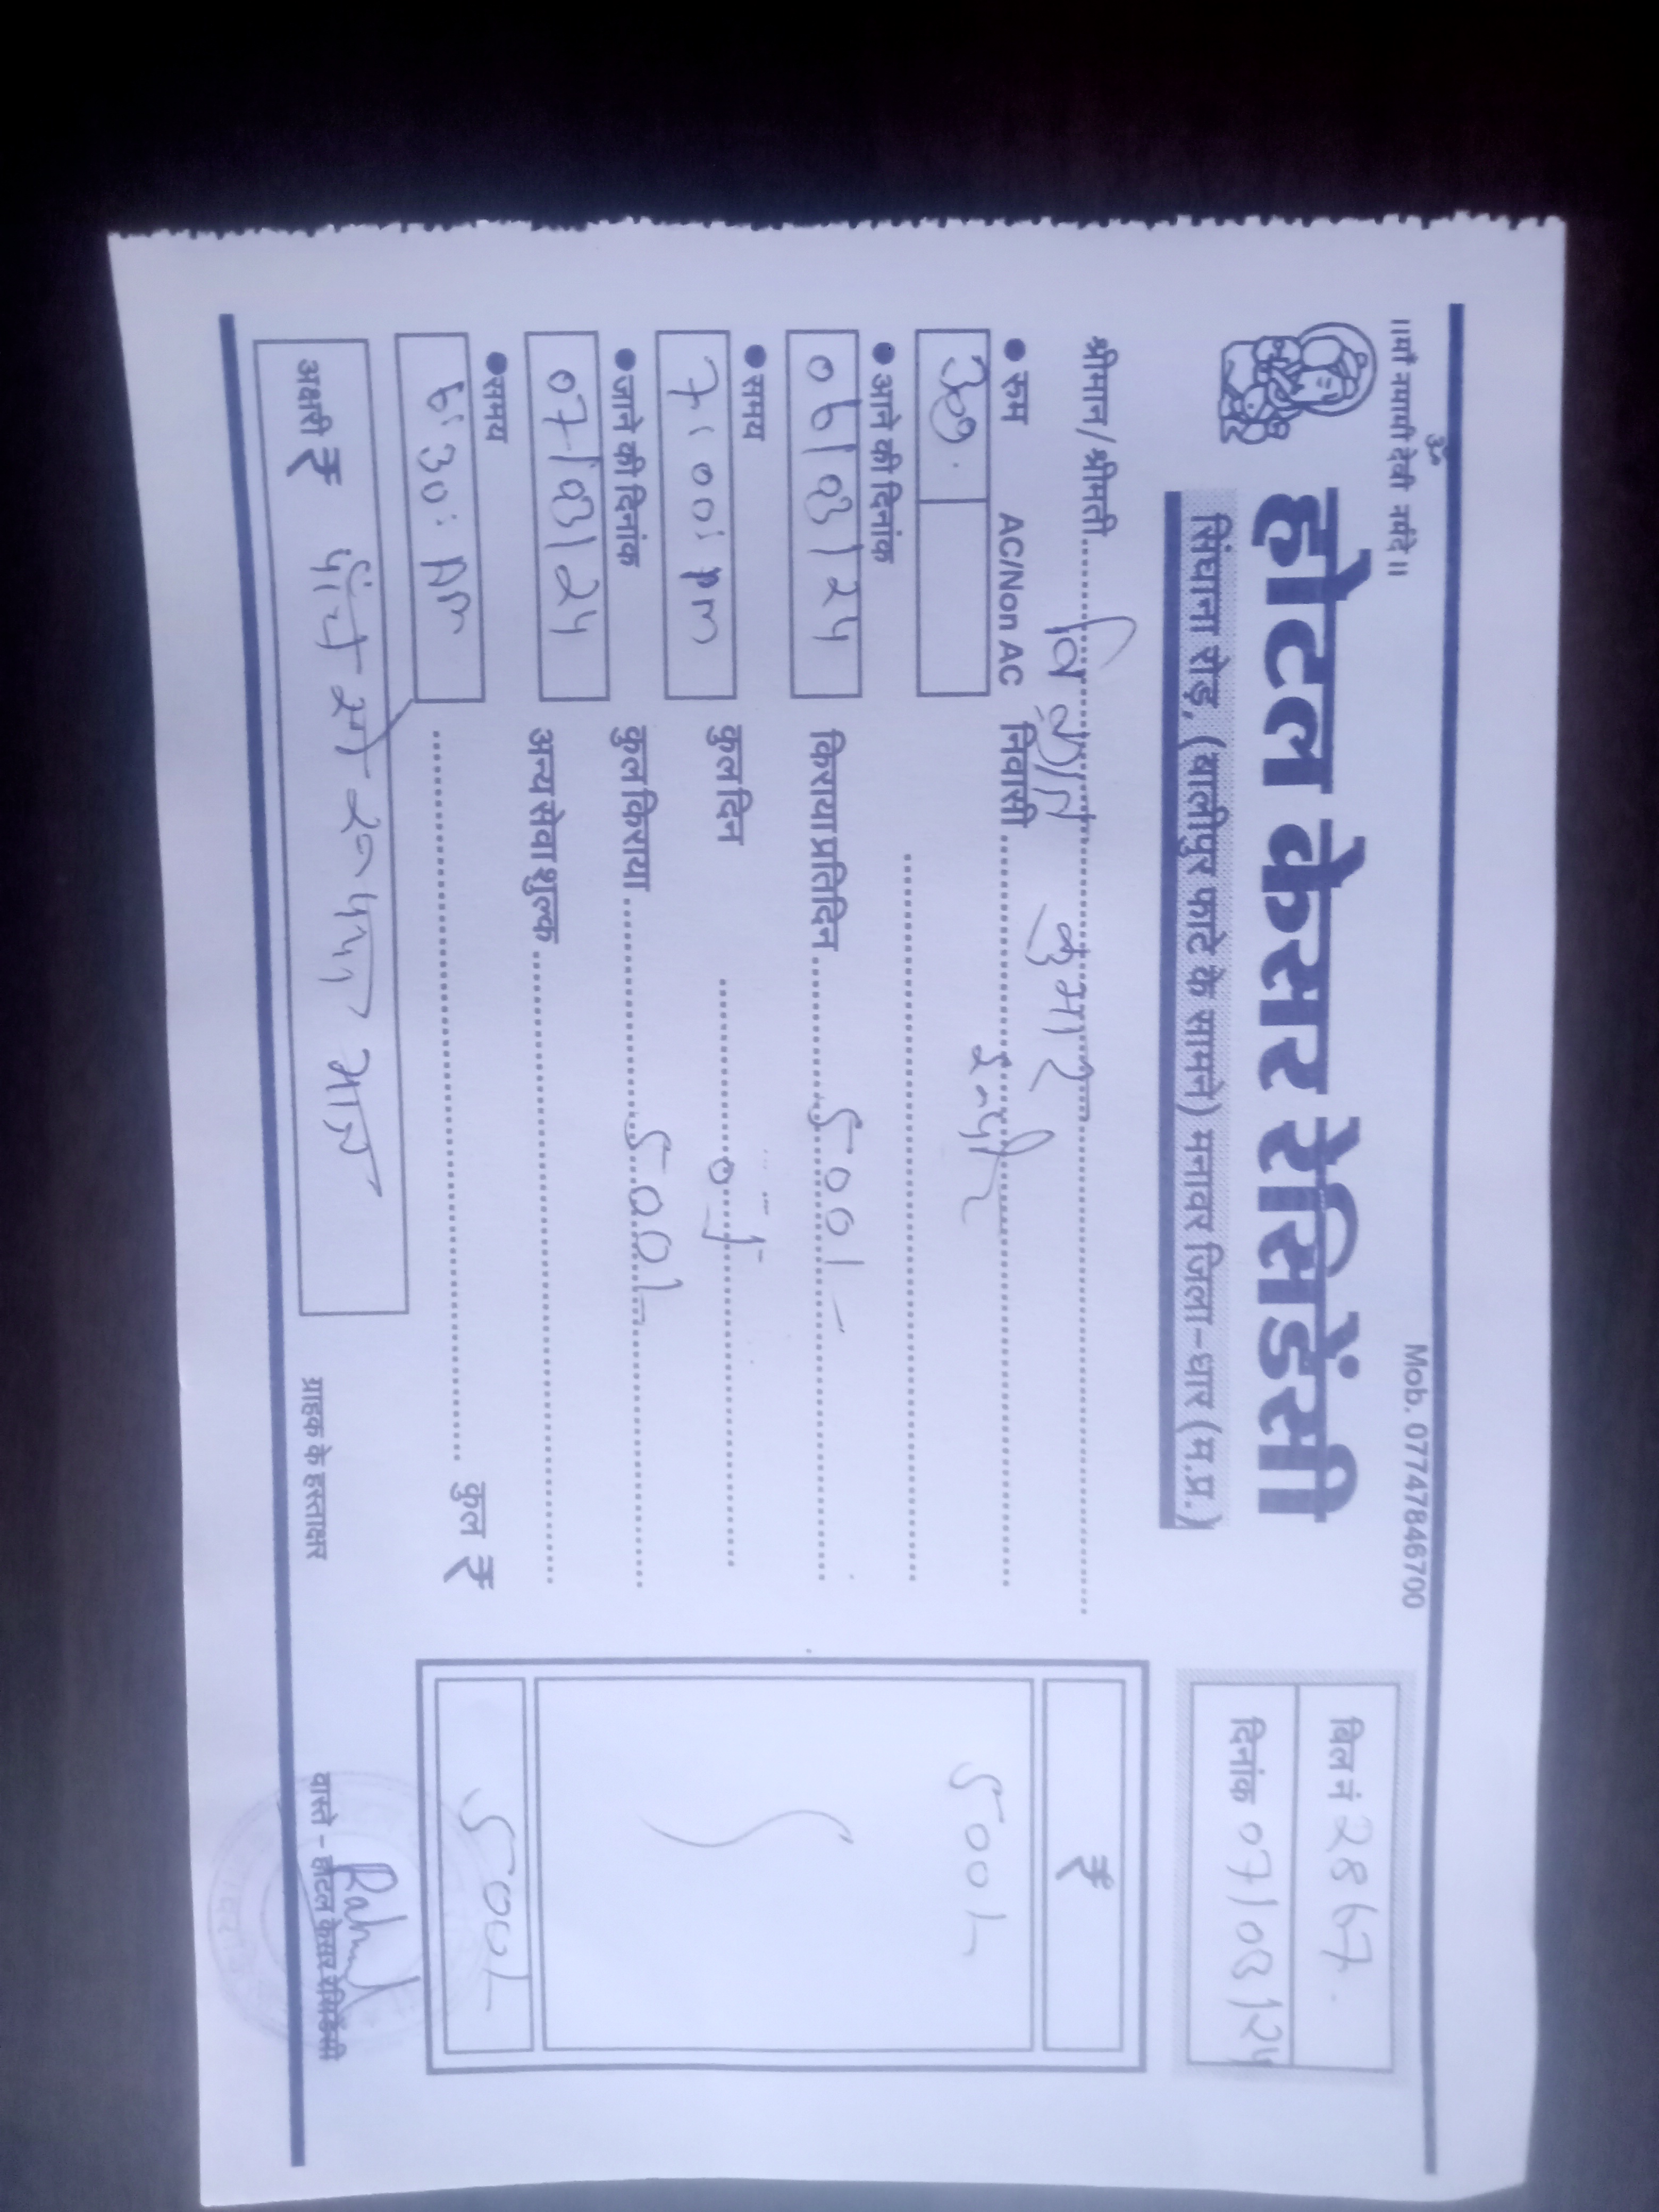 ॐ
॥माँ नमामी देवी नर्मदे॥
Mob. 07747846700
होटल केसर रेसिडेंसी
सिंघाना रोड़, (बालीपुर फाटे के सामने) मनावर जिला-धार (म.प्र.)
बिल नं 2867
दिनांक 07/03/24
श्रीमान/श्रीमती कुमार
रूम AC/Non AC निवासी
आने की दिनांक
06/03/24 किराया प्रतिदिन 500/-
समय
7:00: pm कुल दिन
जाने की दिनांक
07/03/24 कुल किराया 500/-
समय अन्य सेवा शुल्क
8:30: pm
कुल ₹ 500/-
₹
500/-
अक्षरी ₹ पाँच सौ रूपया मात्र
ग्राहक के हस्ताक्षर
वास्ते - होटल केसर रेसिडेंसी